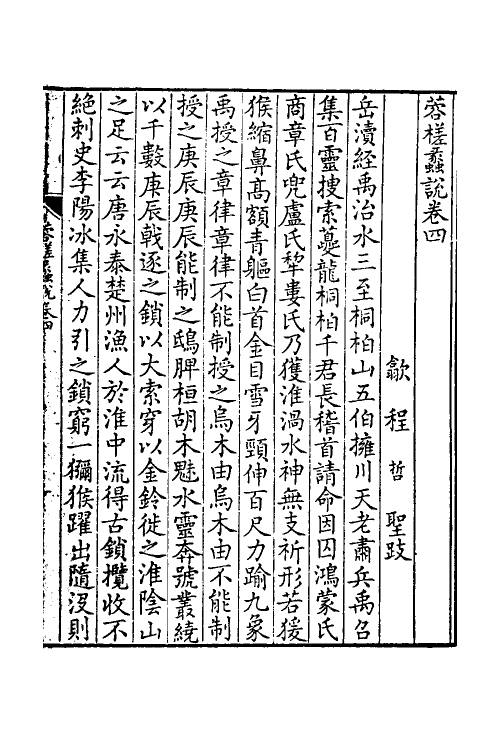 蓉槎蠡說卷四
歙程哲聖跂
岳瀆經禹治水三至桐柏山五伯擁川天老肅兵禹召
集百靈搜索夔龍桐柏千君長稽首請命因囚鴻蒙氏
商章氏兜盧氏犂婁氏乃獲淮渦水神無支祈形若猨
猴縮鼻髙額青軀白首金目雪牙頸伸百尺力踰九象
禹授之章律章律不能制授之烏木由烏木由不能制
授之庚辰庚辰能制之鴟脾桓胡木魅水靈奔號叢繞
以千數庚辰戟逐之鎖以大索穿以金鈴徙之淮陰山
之足云云唐永泰楚州漁人於淮中流得古鎖攬收不
絶刺史李陽冰集人力引之鎖窮一獼猴躍出隨沒則
蓉槎蠡說卷四